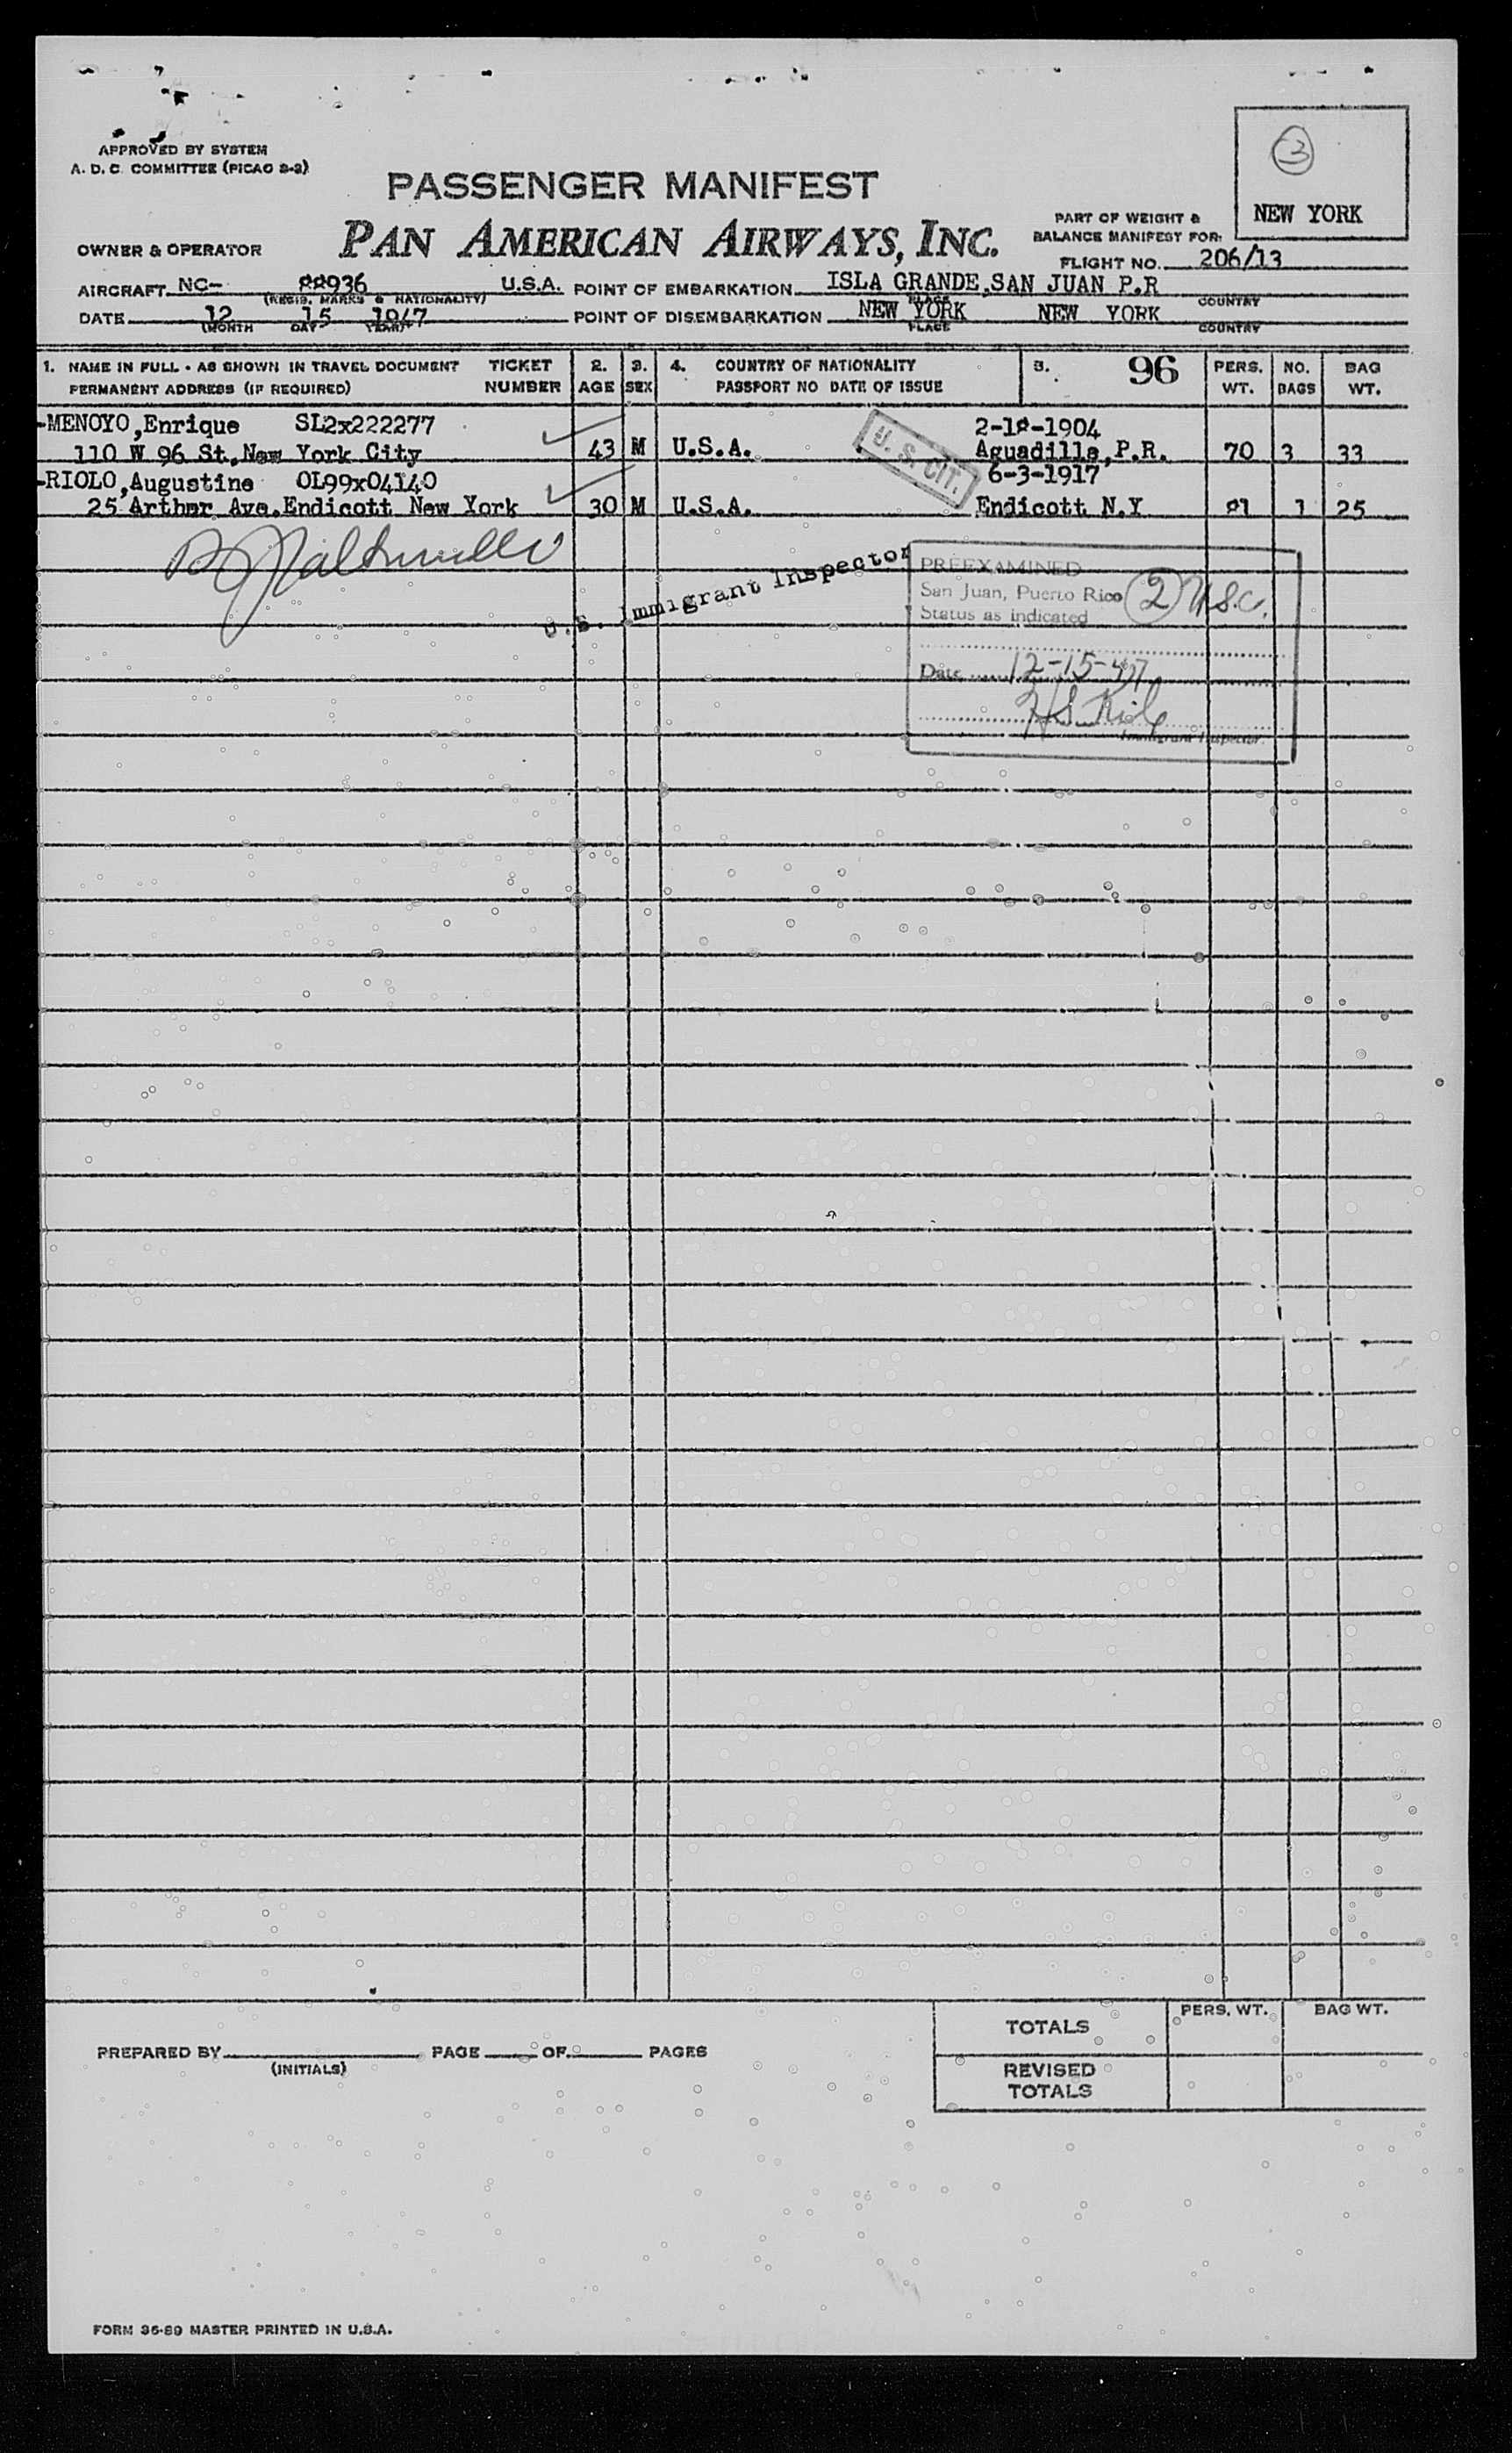 APPROVED BY SYSTEM
A. D. C. COMMITTEE (PICAO 2-2)
3
NEW YORK
PASSENGER MANIFEST
PAN AMERICAN AIRWAYS, INC.
PART OF WEIGHT &
BALANCE MANIFEST FOR:
OWNER & OPERATOR
FLIGHT NO. 206/13
AIRCRAFT NC- 88936 U.S.A. POINT OF EMBARKATION ISLA GRANDE,SAN JUAN P.R
(REGIS. MARKS & NATIONALITY) PLACE COUNTRY
DATE 12 15 1947 POINT OF DISEMBARKATION NEW YORK NEW YORK
(MONTH DAY YEAR) PLACE COUNTRY
1. NAME IN FULL - AS SHOWN IN TRAVEL DOCUMENT TICKET 2. 3. 4. COUNTRY OF NATIONALITY 5. 96 PERS. NO. BAG
PERMANENT ADDRESS (IF REQUIRED) NUMBER AGE SEX PASSPORT NO DATE OF ISSUE WT. BAGS WT.
-MENOYO,Enrique SL2x222277 2-18-1904
110 W 96 St,New York City 43 M U.S.A. U. S. CIT. Aguadilla,P.R. 70 3 33
-RIOLO,Augustine OL99x04140 6-3-1917
25 Arthur Ave.Endicott New York 30 M U.S.A. Endicott N.Y 81 1 25
U.S. Immigrant Inspector
PREEXAMINED
San Juan, Puerto Rico 2 U.S.C.
Status as indicated
Date 12-15-47
Immigrant Inspector.
PERS. WT. BAG WT.
TOTALS
PREPARED BY PAGE OF PAGES
(INITIALS)
REVISED
TOTALS
FORM 36-89 MASTER PRINTED IN U.S.A.